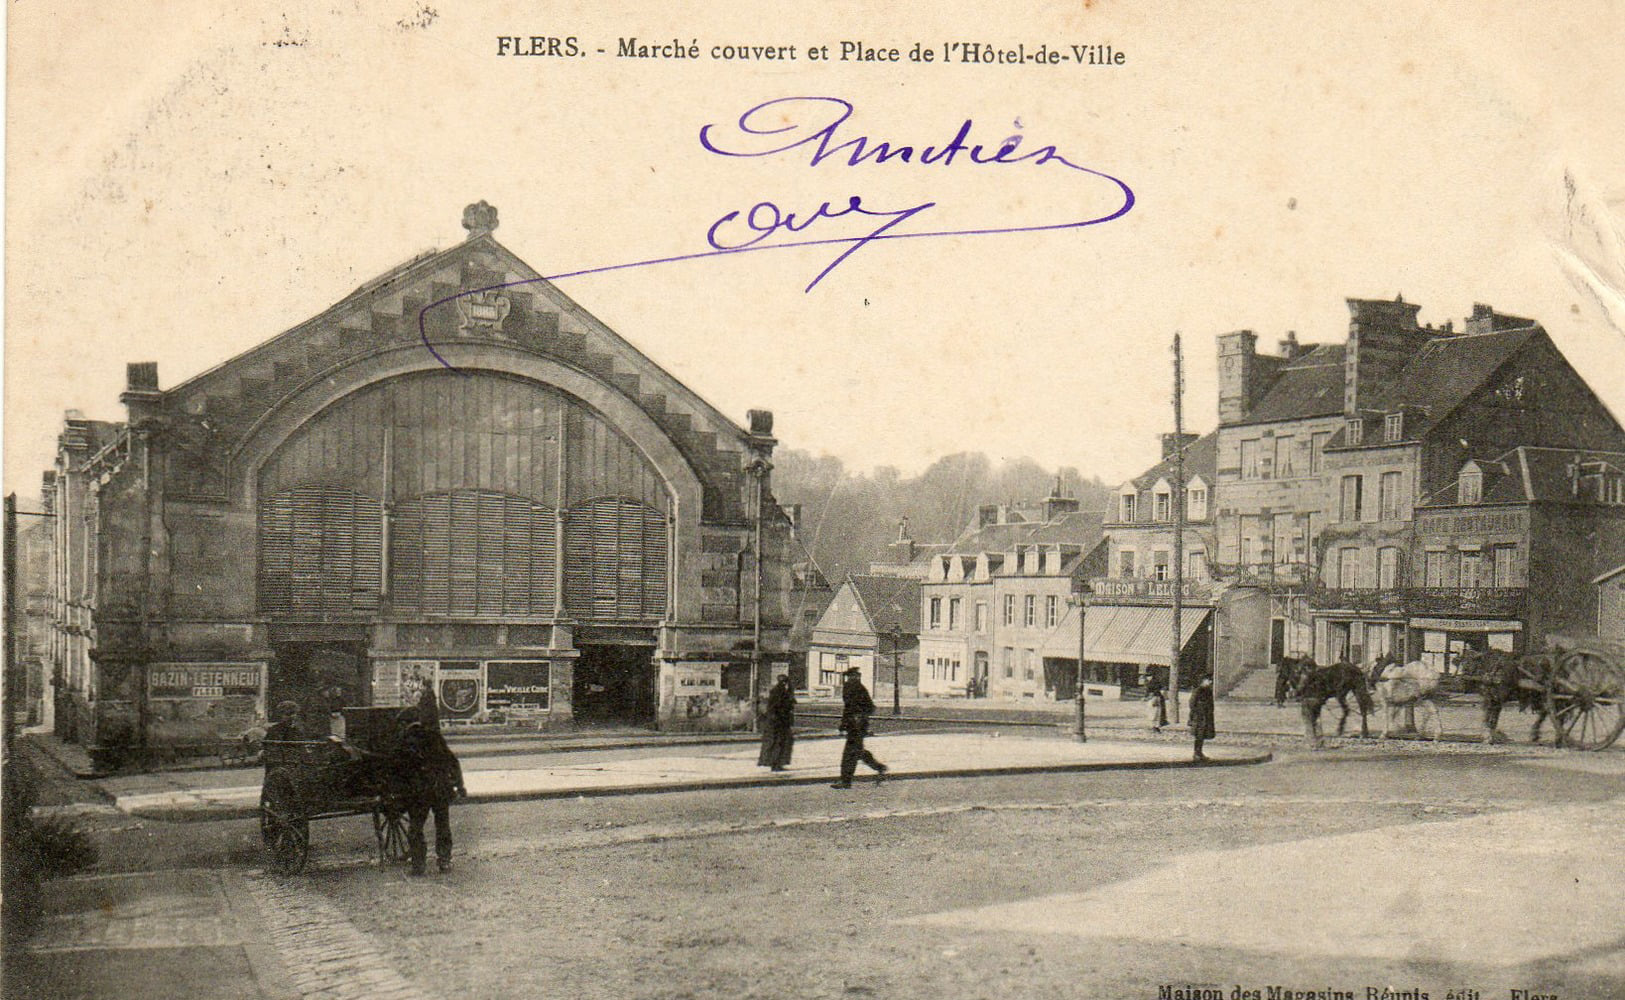 FLERS. - Marché couvert et Place de l'Hôtel-de-Ville
Amitiés
BAZIN-LETENNEUR
FLERS
VIEILLE CURE
MAISON LELONG
CAFÉ RESTAURANT
Maison des Magasins Réunis, édit. Flers